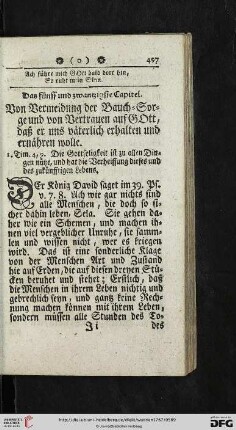 ( o ) 497
Ach führe mich GOtt bald dort hin,
So ruht mein Sinn.
Das fünff und zwantzigste Capitel.
Von Vermeidung der Bauch-Sor-
ge und von Vertrauen auf GOtt,
daß er uns väterlich erhalten und
ernähren wolle.
1. Tim. 4, 8. Die Gottseligkeit ist zu allen Din-
gen nütz, und hat die Verheissung dieses und
des zukünfftigen Lebens.
DEr König David sagt im 39. Ps.
v. 7. 8. Ach wie gar nichts sind
alle Menschen, die doch so si-
cher dahin leben, Sela. Sie gehen da-
her wie ein Schemen, und machen ih-
nen viel vergebliche Unruhe, sie samm-
len und wissen nicht, wer es kriegen
wird. Das ist eine sonderliche Klage
von der Menschen Art und Zustand
hie auf Erden, die auf diesen dreyen Stü-
cken beruhet und stehet; Erstlich, daß
die Menschen in ihrem Leben nichtig und
gebrechlich seyn, und gantz keine Rech-
nung machen können mit ihrem Leben,
sondern müssen alle Stunden des To-
Ji des